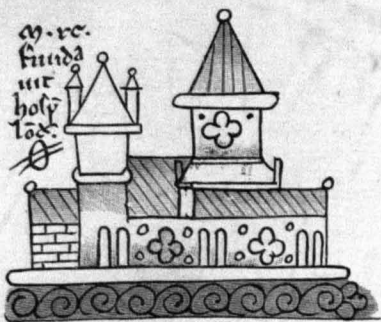 M. xc.
funda
uit
hosp̄
lōd.